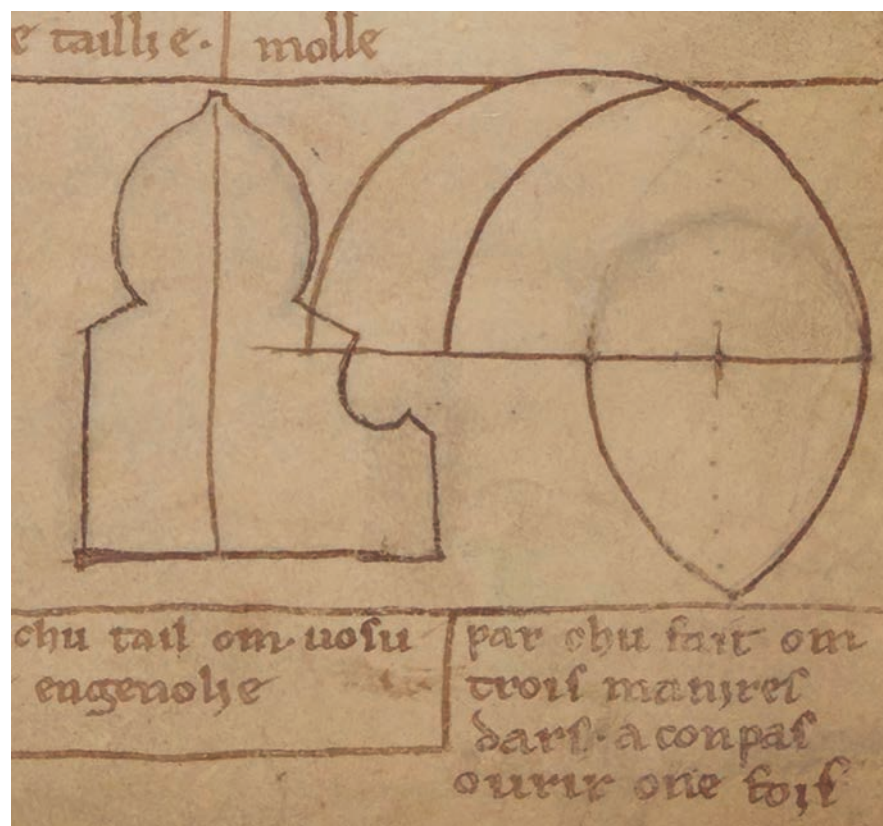 e taillie.
molle
chu tail om uosu
engenolie
par chu fait om
trois manires
dars. a conpas
ourir one fois